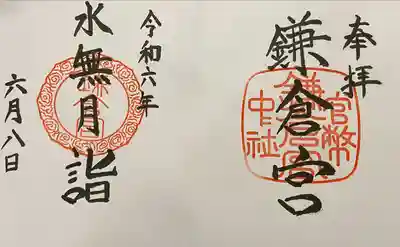 奉拝
鎌倉宮
官幣
鎌倉宮
中社
令和六年
水無月詣
六月八日